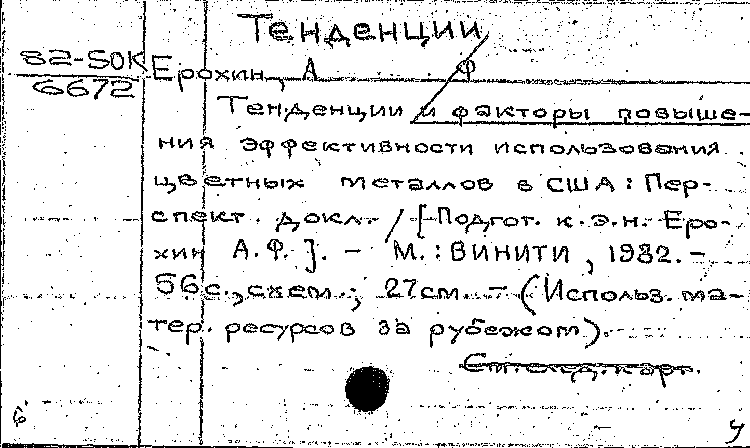 Тенденции
82-50К
6672
Ерохин, А Ф
Тенденции и факторы повыше-
ния эффективности использования
цветных металлов в США: Пер-
спект. докл. / [Подгот. к.э.н. Еро-
хин А.Ф.]. - М.: ВИНИТИ, 1982. -
56 с., схем.; 27см. - (Использ. ма-
тер. ресурсов за рубежом).
6 4